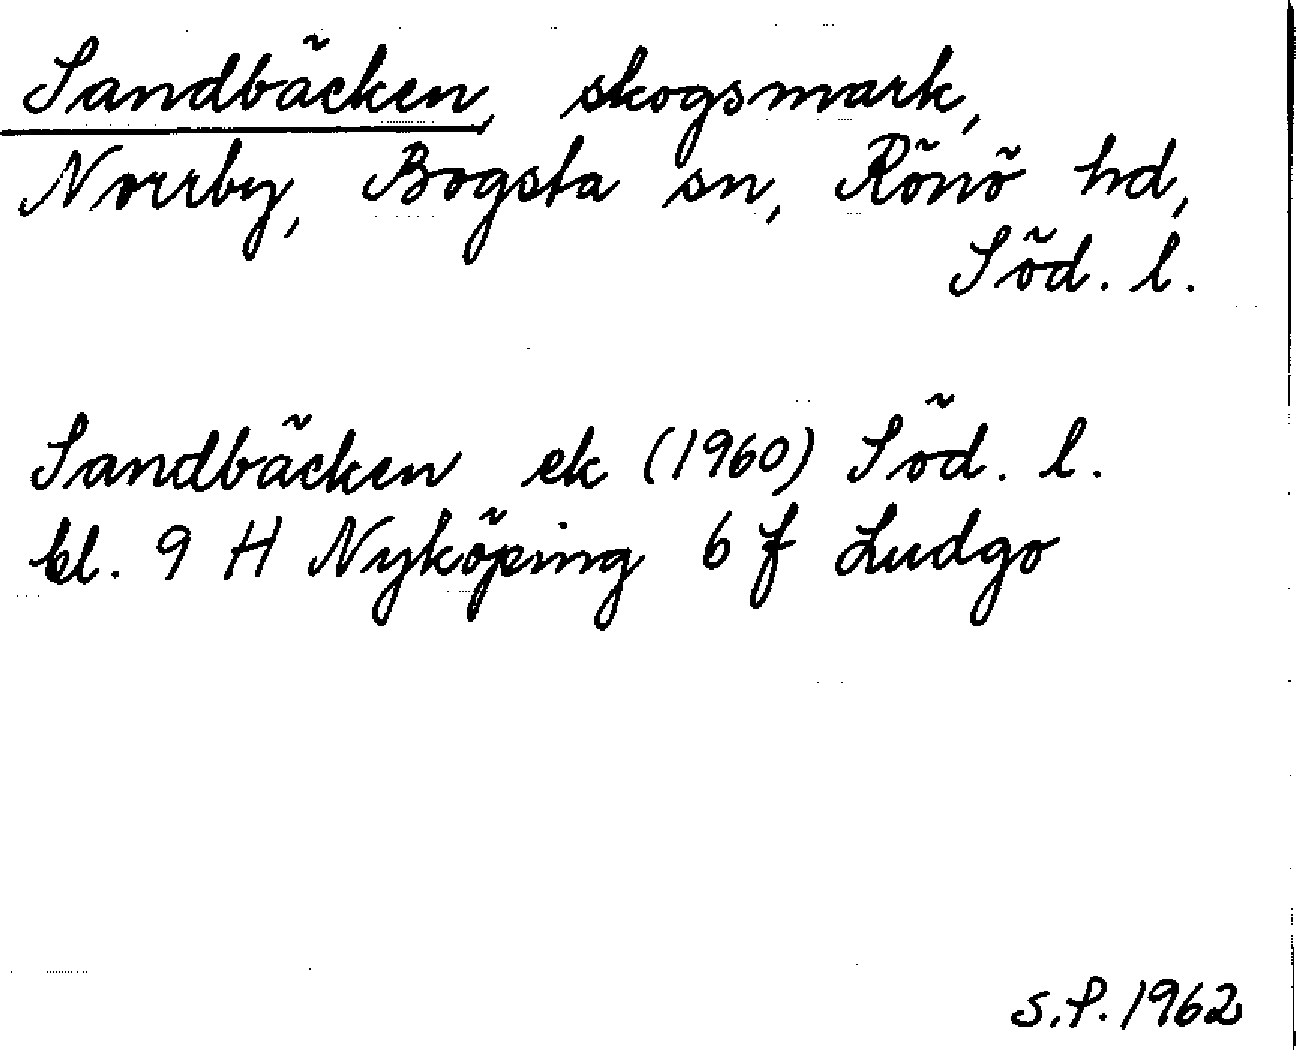 Sandbäcken, skogsmark,
Norrby, Bogsta sn, Rönö hd,
Söd. l.
Sandbäcken ek (1960) Söd. l.
bl. 9 H Nyköping 6 f Ludgo
S.P. 1962